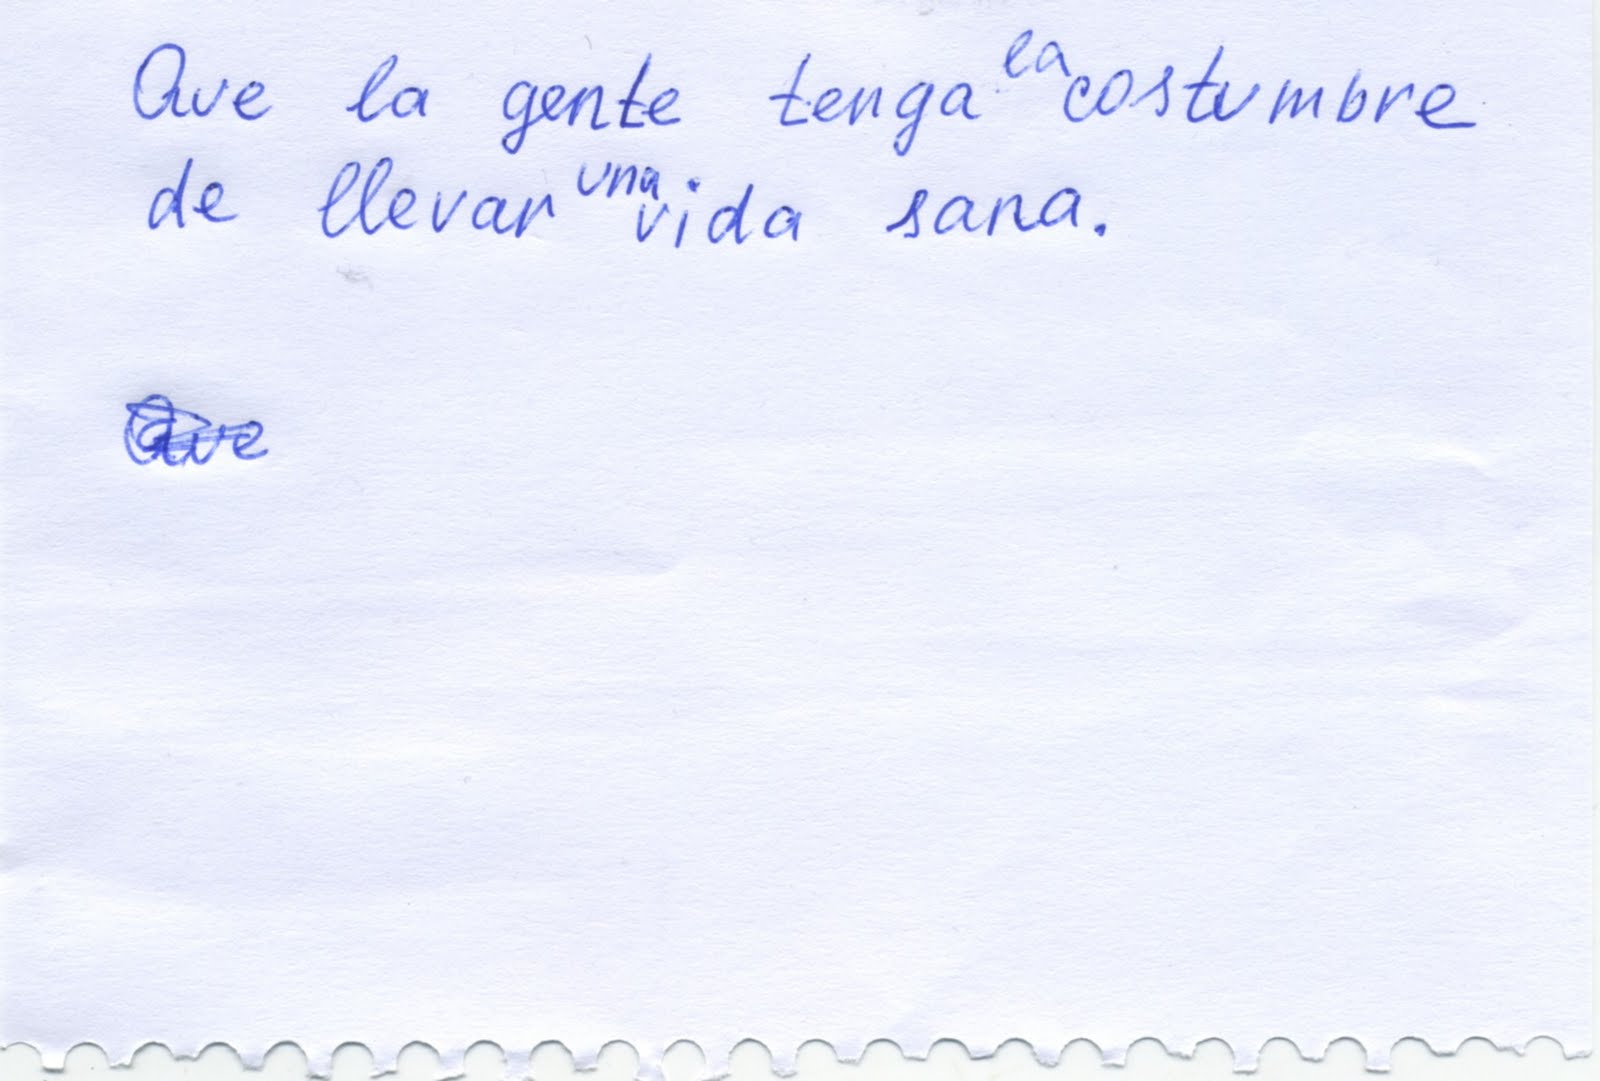 Que la gente tenga la costumbre
de llevar una vida sana.
Que